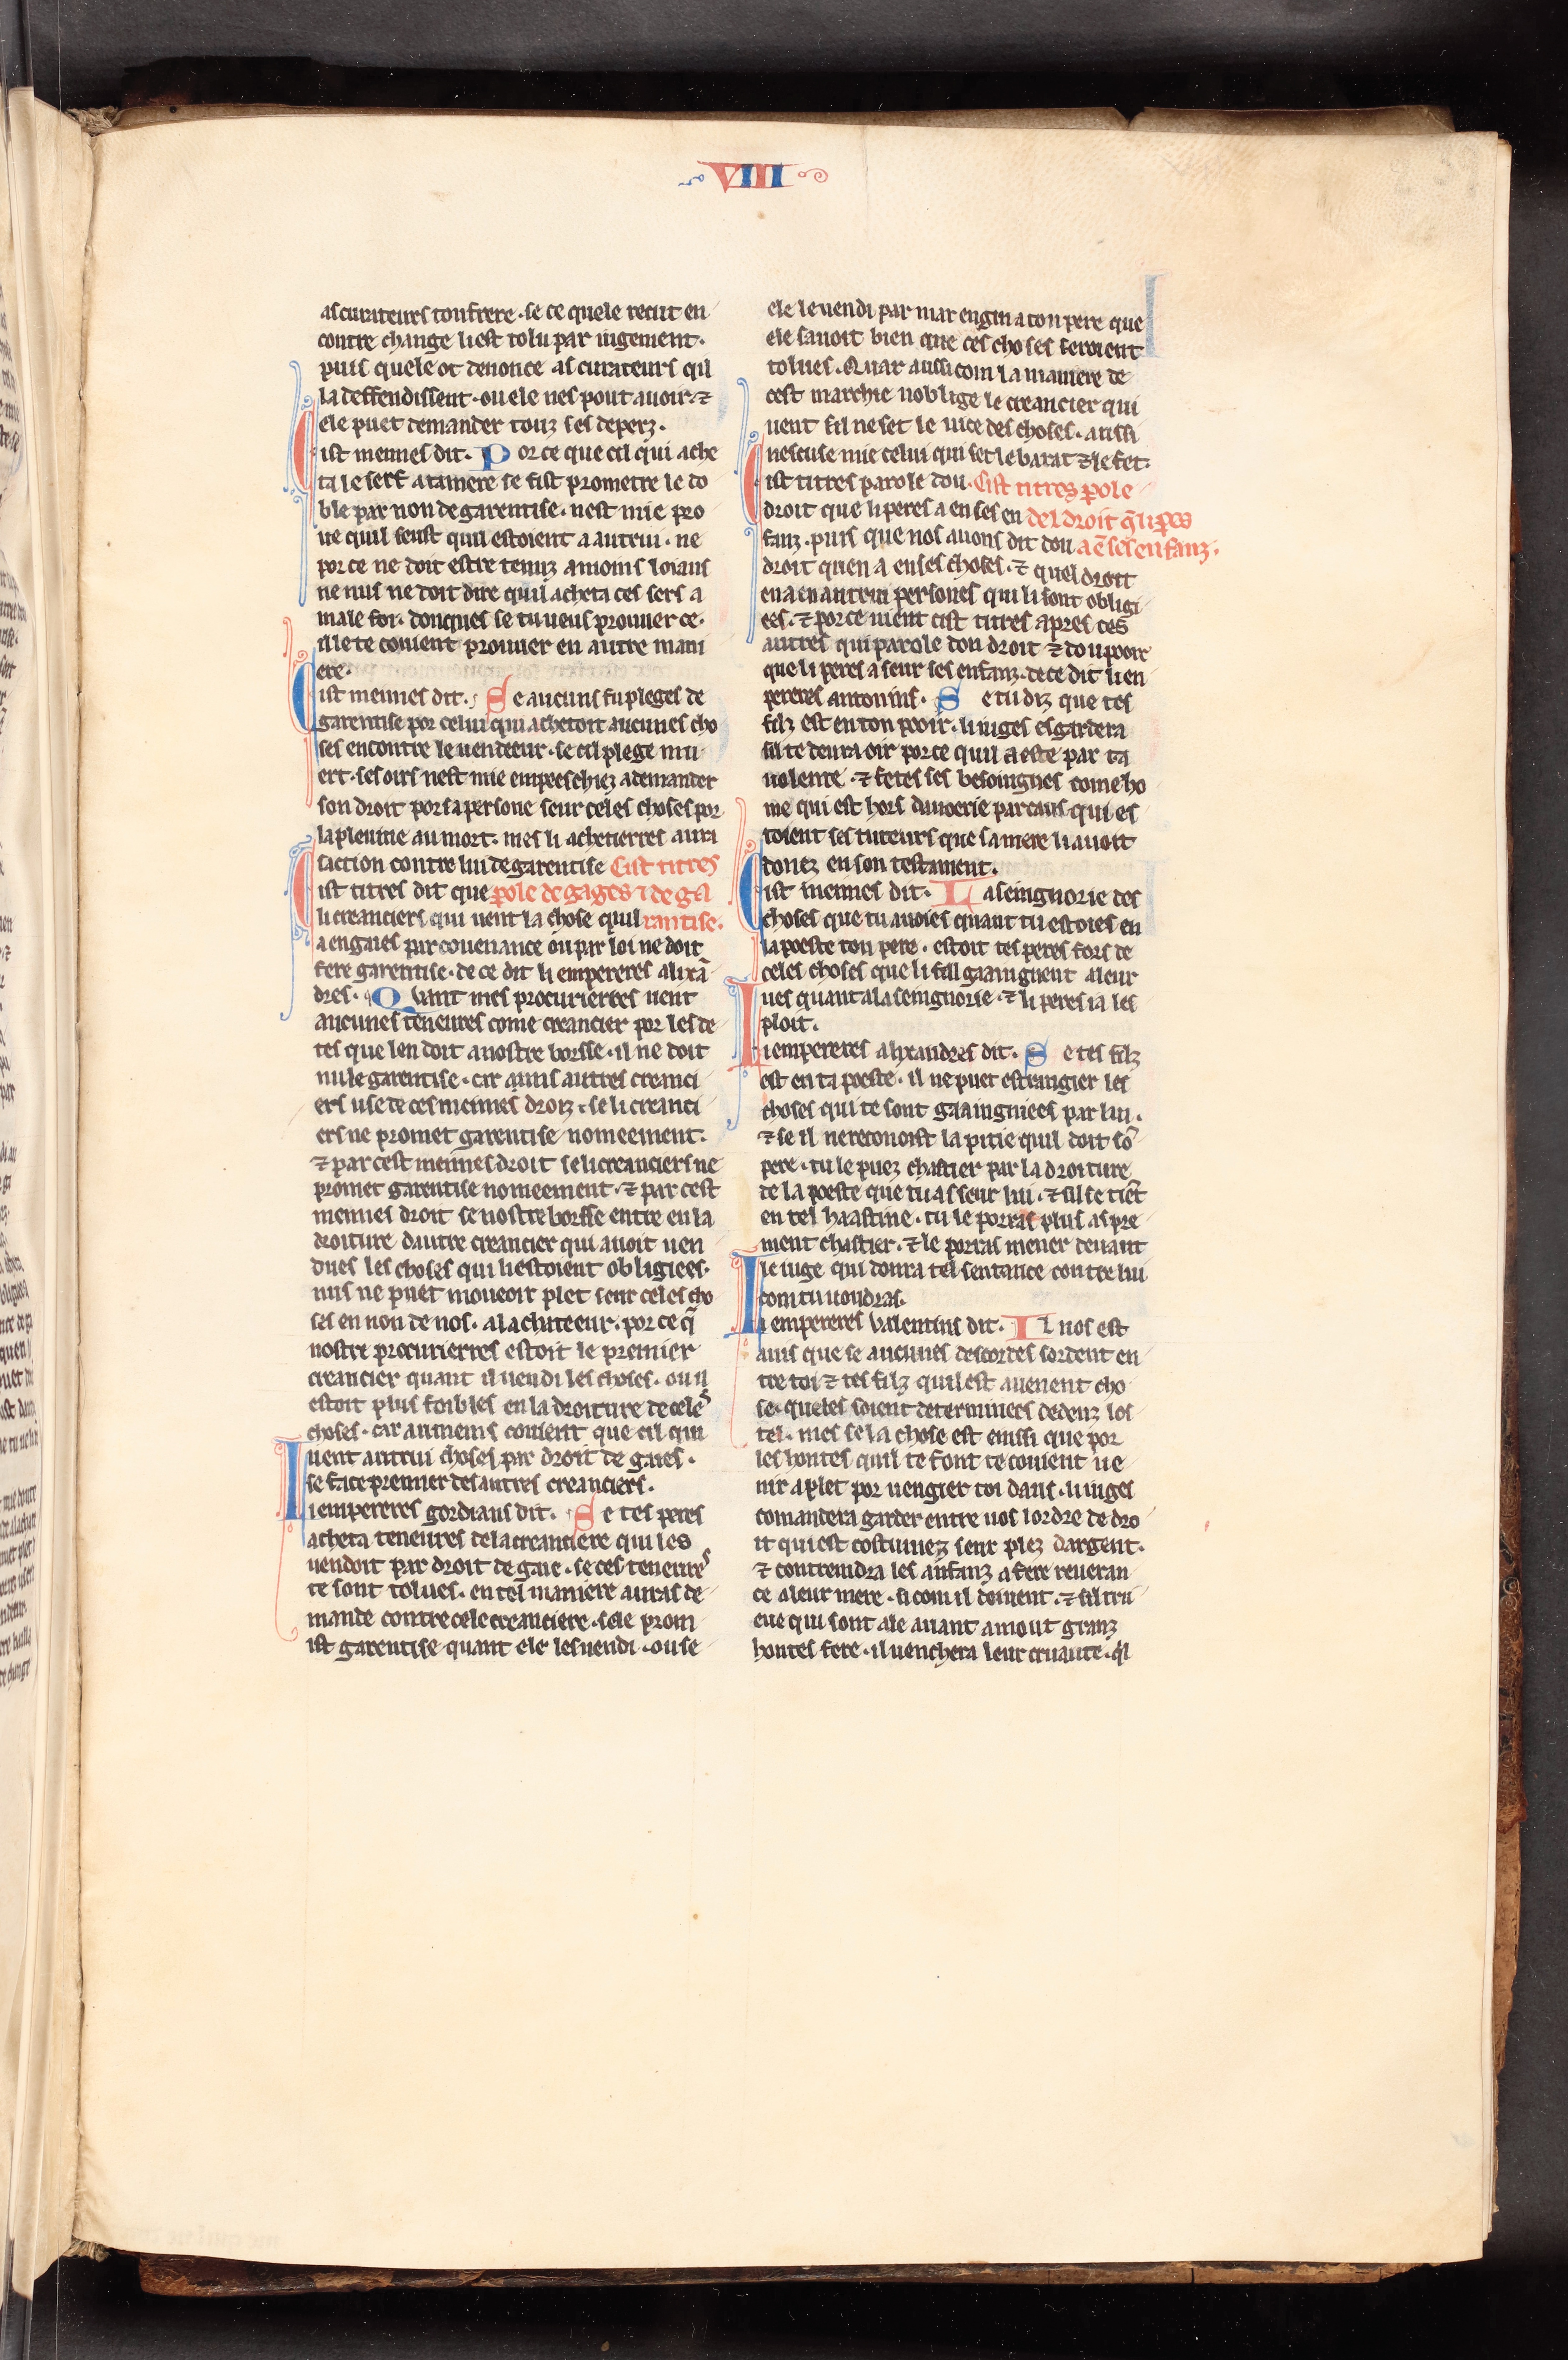 VIII
as curateurs ton frere · se ce quele recut en
contre change li est tolu par iugement ·
puis quele ot denonce as curateurs qil
la deffendissent · ou ele nes pout auoir · ⁊
ele puet demander touz ses deperz ·
Cist meimes dit · Por ce que cil qui ache
ta le serf a ta mere se fist prometre le do
ble par non de garentise · nest mie pro
ue quil seust quil estoient a autrui · ne
por ce ne doit estre tenuz a moins loiaus
ne nus ne doit dire quil acheta ces sers a
male foi · donques se tu ueus prouuer ce ·
il te couient prouuer en autre mani
ere ·
Cist meimes dit · Se aucuns fu pleges de
garentise por celui qui achetoit aucunes cho
ses encontre le uendeeur · se cil plege mu
ert · ses oirs nest mie empeeschiez a demander
son droit por sa persone seur celes choses por
la pleuine au mort · mes li achetierres aura
saction contre lui de garentise Cist titres
Cist titres dit que p̲ole de gages ⁊ de ga
li creanciers qui uent la chose quil rantise ·
a en gaies par couenance ou par loi ne doit
fere garentise · de ce dit li empereres alixā
dres · Quant mes procurierres uent
aucunes teneures come creancier por les de
tes que len doit a nostre borsse · il ne doit
nule garentise · car ausis autres creanci
ers use de ces meimes droiz · se li creanci
ers ne promet garentise nomeement ·
⁊ par cest meimes droit se li creanciers ne
promet garentise nomeement · ⁊ par cest
meimes droit se nostre borsse entre en la
droiture dautre creancier qui auoit uen
dues les choses qui li estoient obligiees ·
nus ne puet moueoir plet seur celes cho
ses en non de nos · a lachateeur · por ce q̄
nostre procurierres estoit le premier
creancier quant il uendi les choses · ou il
estoit plus foibles en la droiture de celes
choses · car aumeins couient que cil qui
uent autrui choses par droit de gaies ·
se face premier des autres creanciers ·
Li empereres gordians dit · Se tes peres
acheta teneures de la creanciere qui les
uendoit par droit de gaie · se ces teneures
te sont tolues · en tel maniere auras de
mande contre cele creanciere · sele prom
ist garentise quant ele les uendi · ou se
ele le uendi par mar engin a ton pere que
ele sauoit bien que ces choses seroient
tolues · Quar aussi com la maniere de
cest marchie noblige le creancier qui
uent sil ne set le uice des choses · aussi
nescuse mie celui qui set le barat ⁊ le fet ·
Cist titres parole dou · Cist titres p̲ole
droit que li peres a en ses en del droit q̄ li p̲es
fanz · puis que nos auons dit dou a ē ses enfanz ·
droit quen a en ses choses · ⁊ quel droit
en a en autrui persones qui li sont obligi
ees · ⁊ por ce uient cist titres apres ces
autres qui parole dou droit ⁊ dou pooir
que li peres a seur ses enfanz · de ce dit li en
pereres antonins · Se tu diz que tes
filz est en ton pooir · li iuges esgardera
sil te deura oir por ce quil a este par ta
uolente · ⁊ fetes ses besoingnes come ho
me qui est hors dauoerie par caus qui es
toient ses tuteurs que sa mere li auoit
donez en son testament ·
Cist meimes dit · La seingnorie des
choses que tu auoies quant tu estoies en
la poeste ton pere · estoit tes peres fors de
celes choses que li fill gaaingnent a leur
ues quant a la seingnorie · ⁊ li peres ia les
ploit ·
Li empereres alixandres dit · Se tes filz
est en ta poeste · il ne puet estrangier les
choses qui te sont gaaingniees par lui ·
⁊ se il nereconoist la pitie quil doit sō
pere · tu le puez chastier par la droiture
de la poeste que tu as seur lui · ⁊ sil se tiēt
en tel haastine · tu le porras plus aspre
ment chastier · ⁊ le porras mener deuant
le iuge qui donra tel sentance contre lui
com tu uoudras ·
Li empereres valentins dit · Il nos est
auis que se aucunes descordes sordent en
tre toi ⁊ tes filz quil est auenent cho
se · queles soient determinees dedenz los
tel · mes se la chose est einssi que por
les hontes quil te font te couient ue
nir a plet por uengier toi dans · li iuges
comandera garder entre uos lordre de dro
it qui est costumez seur plez dargent ·
⁊ contreindra les anfanz a fere reueran
ce a leur mere · si com il doiuent · ⁊ sil tru
eue qui sont ale auant a mout granz
hontes fere · il uenchera leur cruaute · q̄l